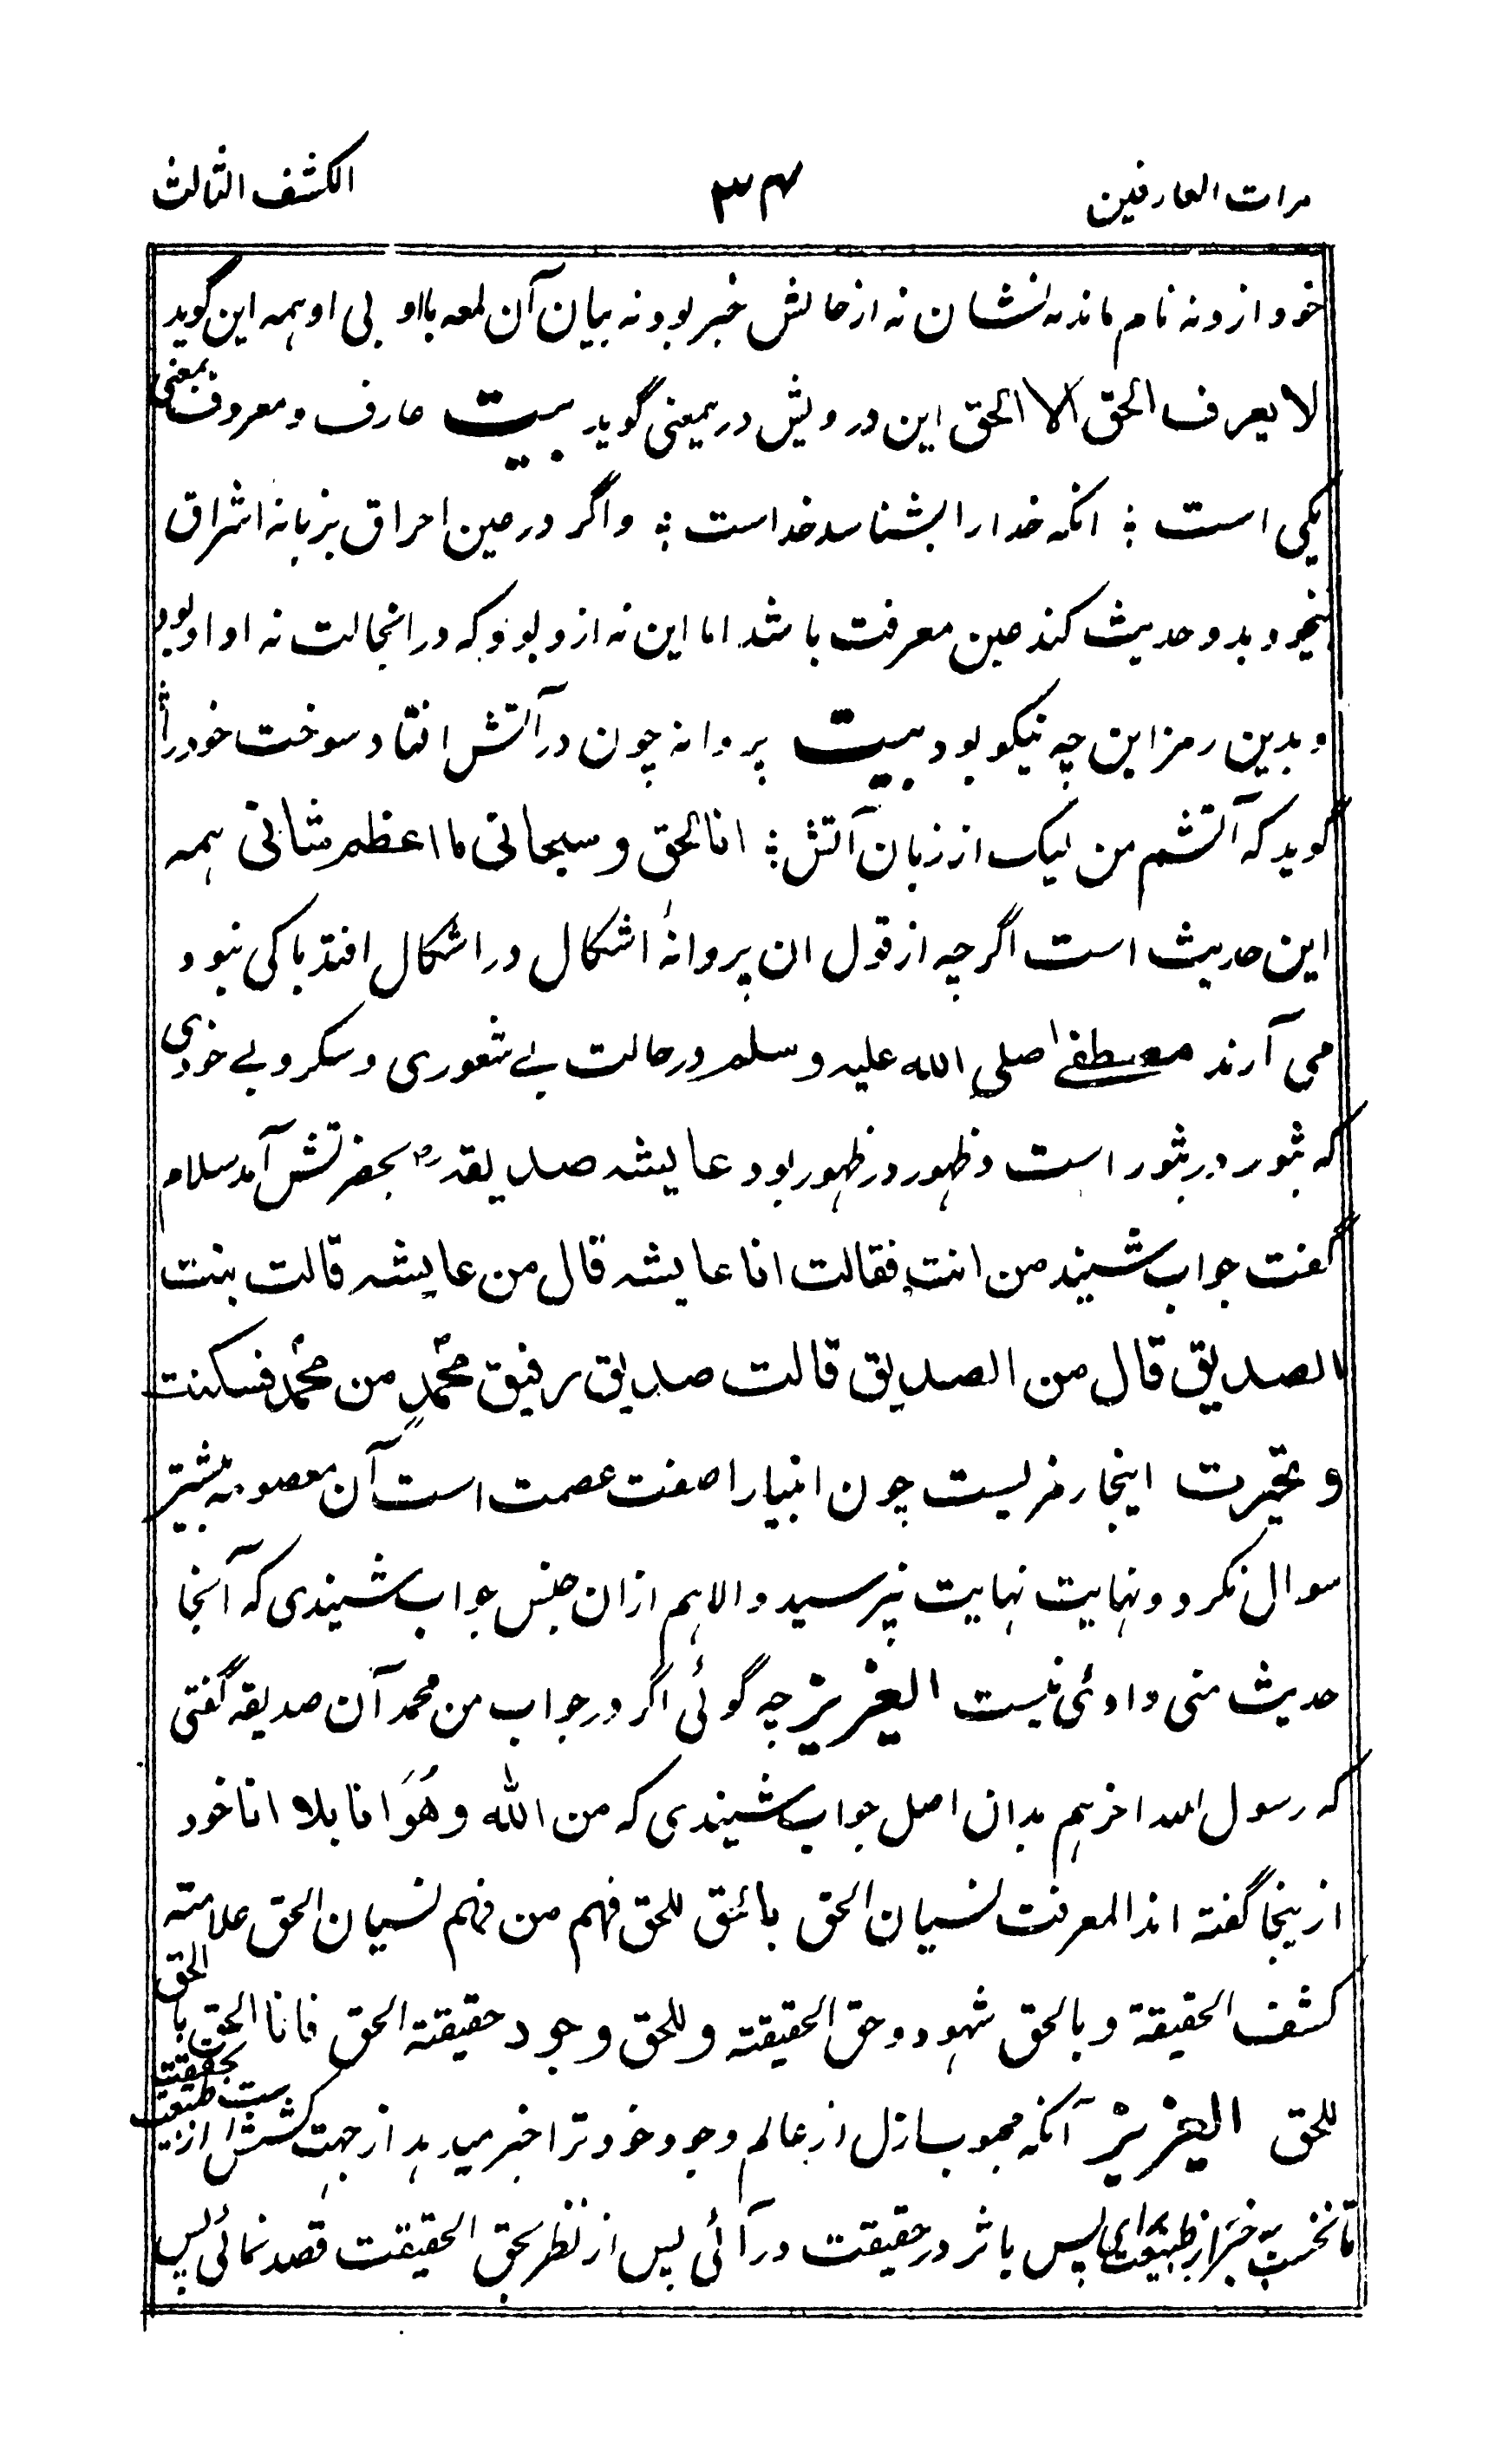 مرات العارفین ۳۴ الکشف الثالث
خود ازو نه نام ماند نه نشان نه از حالش خبر بود نه بیان آن لمعه بااو بی او همه این گوید
لا یعرف الحق الا الحق این درویش درین معنی گوید بیت عارف و معروف بمعنی
یکی است ؛ انکه خدا را بشناسد خداست ؛ و اگر در عین احراق بزبانه اشراق
بدو حدیث کند عین معرفت باشد اما این نه ازو بود که در انحالت نه او او بود
و بدین رمز این چه نیکو بود بیت پروانه چون در آتش افتاد سوخت خود را
گوید که آتشم من لیک از زبان آتش ؛ انا الحق و سبحانی ما اعظم شانی همه
این حدیث است اگرچه از قول ان پروانهٔ اشکال در اشکال افتد باکی نبود
می آرند مصطفی صلی الله علیه وسلم در حالت بے شعوری و سکر و بے خودی
که ثبور در ثبور است و ظهور در ظهور بود عایشه صدیقه رض بحضرتش آمد سلام
گفت جواب شنید من انت فقالت انا عایشه قال من عایشه قالت بنت
الصدیق قال من الصدیق قالت صدیق رفیق محمدٍ من محمد فسکنت
و تحیرت اینجا رمزیست چون انبیا را صفت عصمت است آن معصومه بیشتر
سوال نکرد و نهایت نهایت نپرسید والا هم ازان جنس جواب شنیدی که آنجا
حدیث منی و اوئی نیست العزیز چه گوئی اگر در جواب من محمد آن صدیقه گفتی
که رسول الله اخر هم بدان اصل جواب شنیدی که من الله وهُوَ انا بلا انا خود
ازینجا گفته اند المعرفت نسیان الحق بالحق للحق فهم من فهم نسیان الحق علامته
کشف الحقیقة و بالحق شهود وحق الحقیقته و للحق وجود حقیقته الحق فانا الحق بالحق
للحق العزیز آنکه محبوب ازل از عالم وجود خود ترا خبر میدهد از جهت کشش از طبیعت بحقیقت
تا نخست خبر از طبیعت پس باثر در حقیقت در آئی پس از نظر بحق الحقیقت قصد نمائی پس